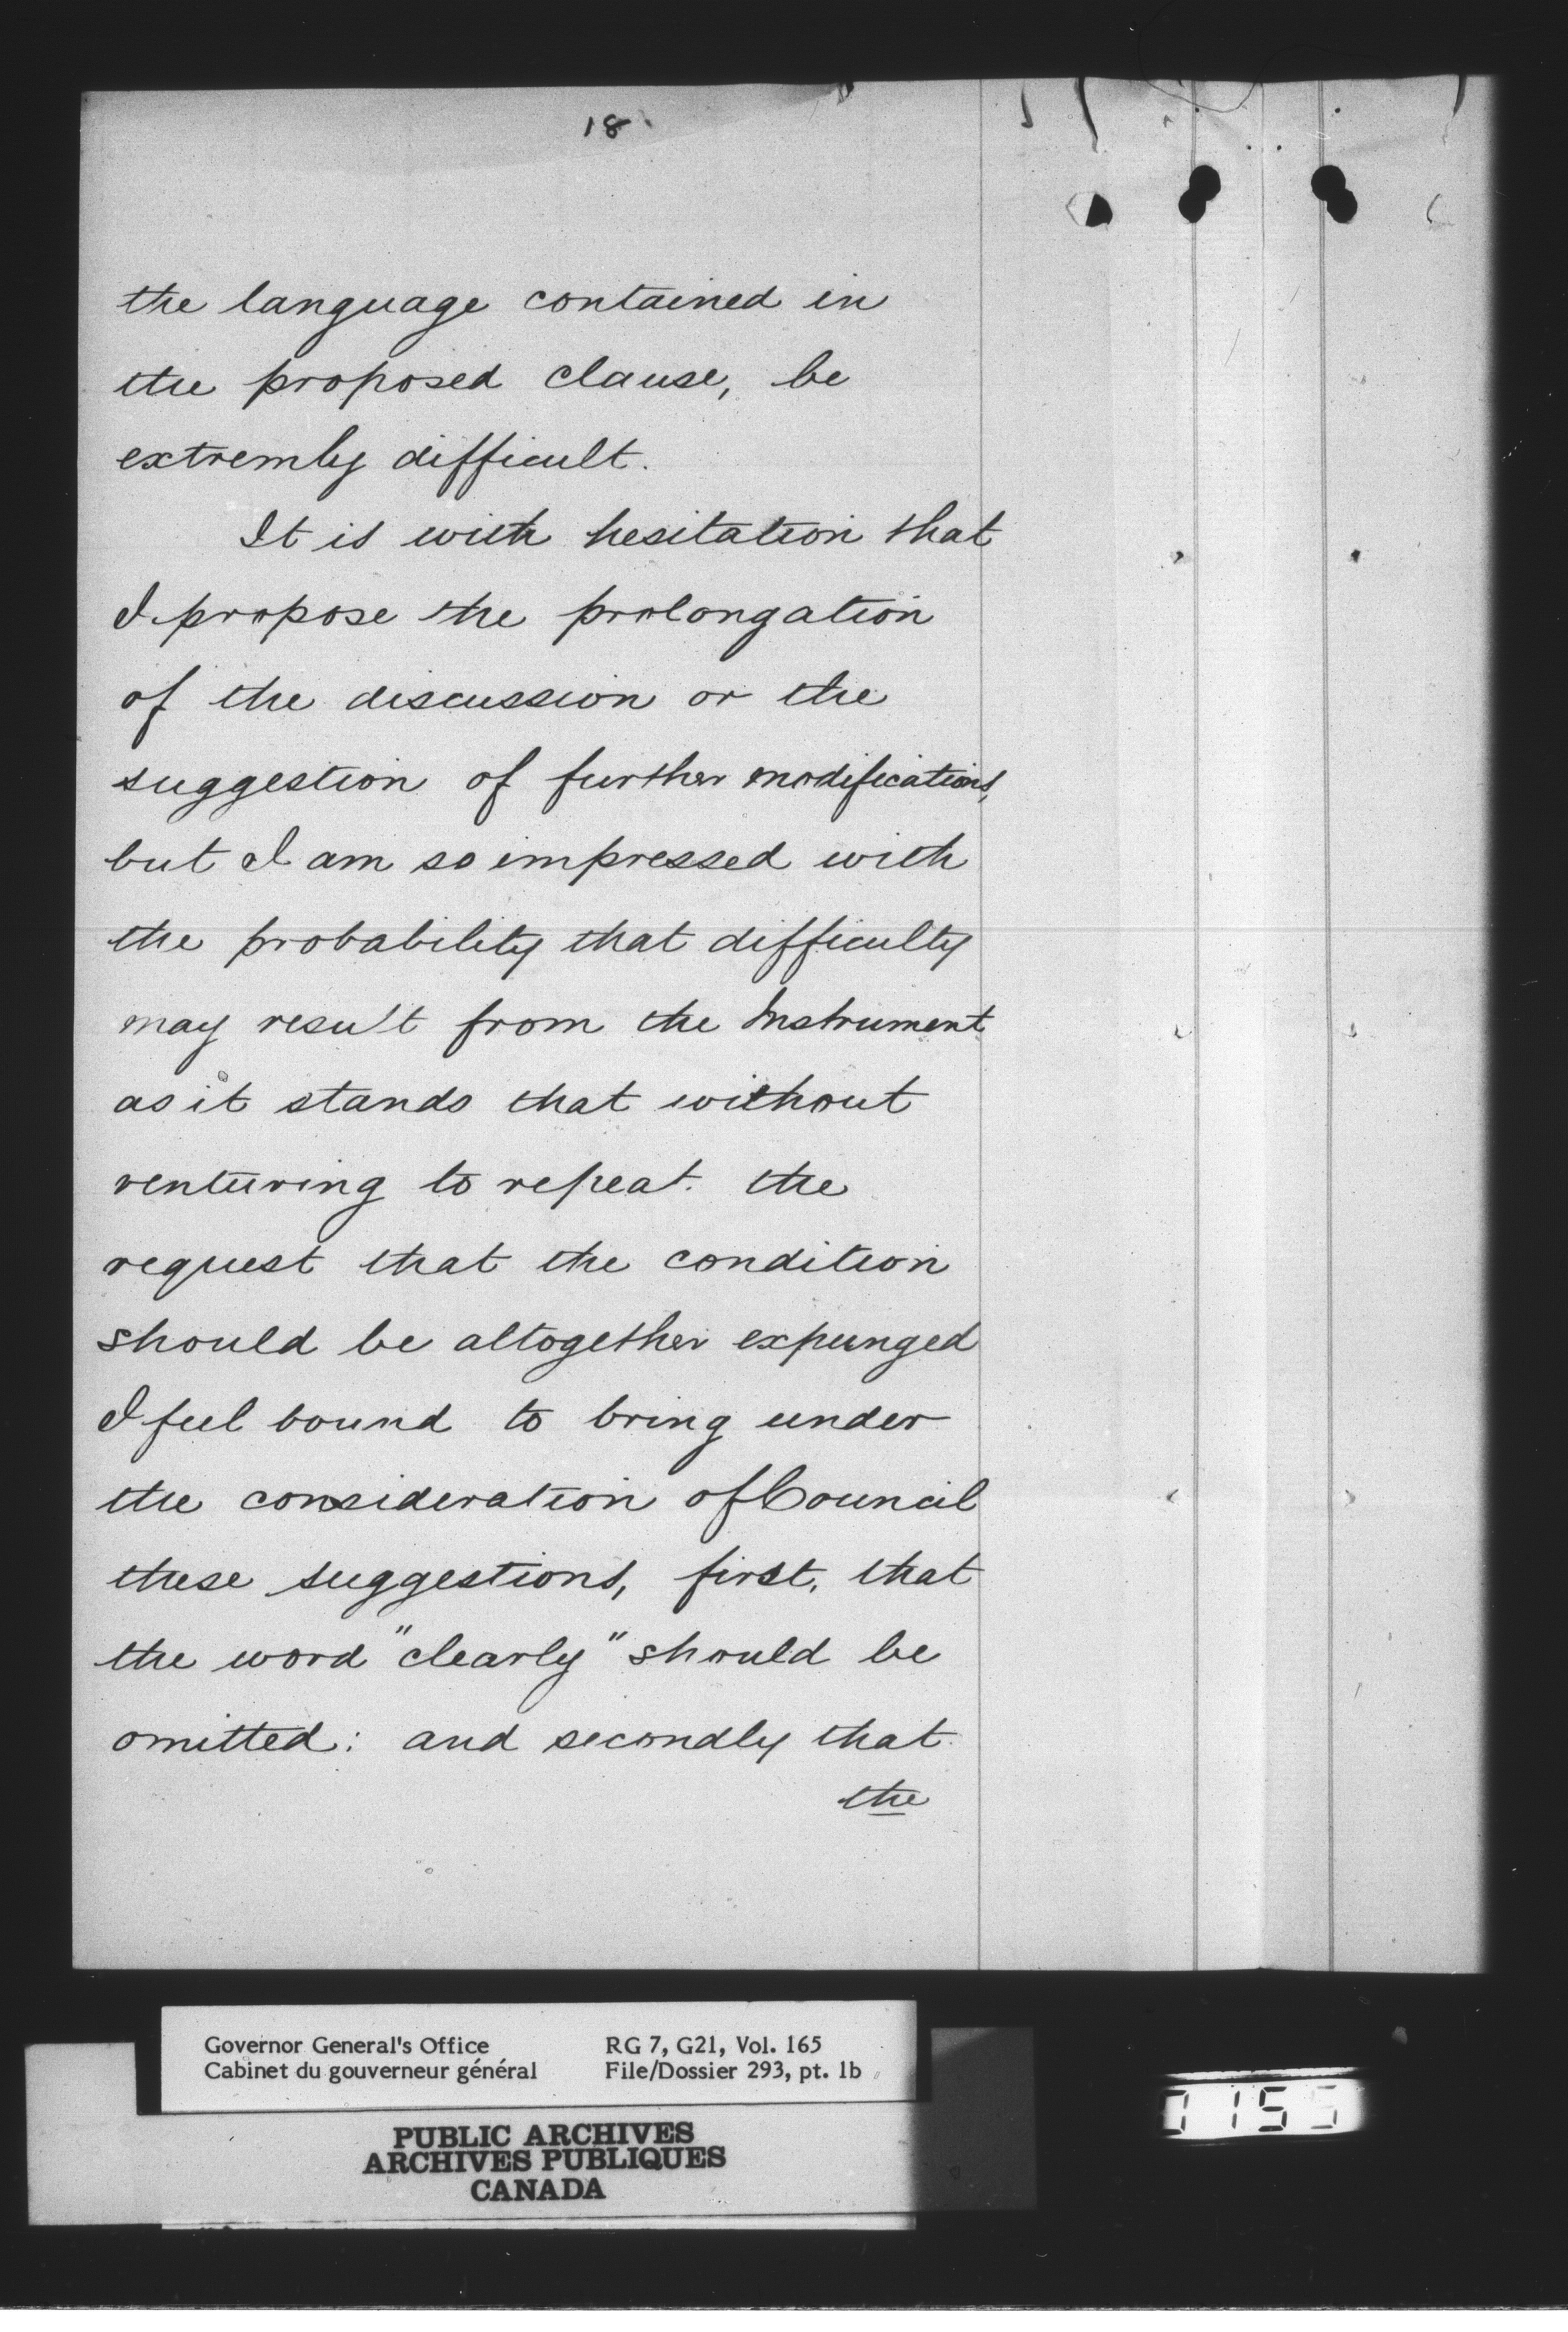 18.
the language contained in
the proposed clause, be
extremly difficult.
It is with hesitation that
I propose the prolongation
of the discussion or the
suggestion of further modifications,
but I am so impressed with
the probability that difficulty
may result from the Instrument
as it stands that without
venturing to repeat the
request that the condition
should be altogether expunged
I feel bound to bring under
the consideration of Council
these suggestions, first, that
the word "clearly" should be
omitted: and secondly that
the
Governor General's Office RG 7, G21, Vol. 165
Cabinet du gouverneur général File/Dossier 293, pt. 1b
PUBLIC ARCHIVES
ARCHIVES PUBLIQUES
CANADA